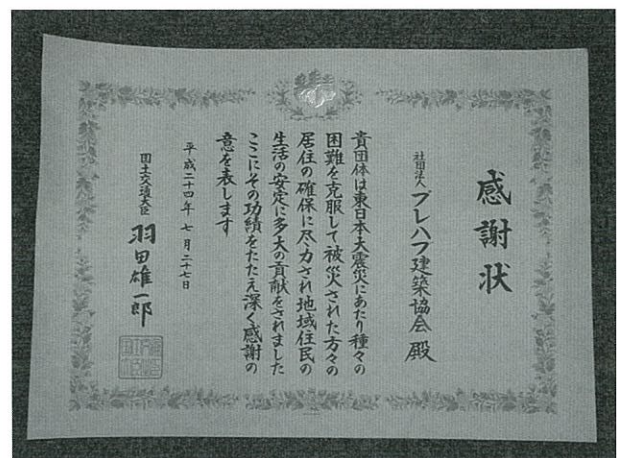 感謝状
社団法人 プレハブ建築協会 殿
貴団体は東日本大震災にあたり種々の
困難を克服して被災された方々の
居住の確保に尽力され地域住民の
生活の安定に多大の貢献をされました
ここにその功績をたたえ深く感謝の
意を表します
平成二十四年七月二十七日
国土交通大臣 羽田雄一郎